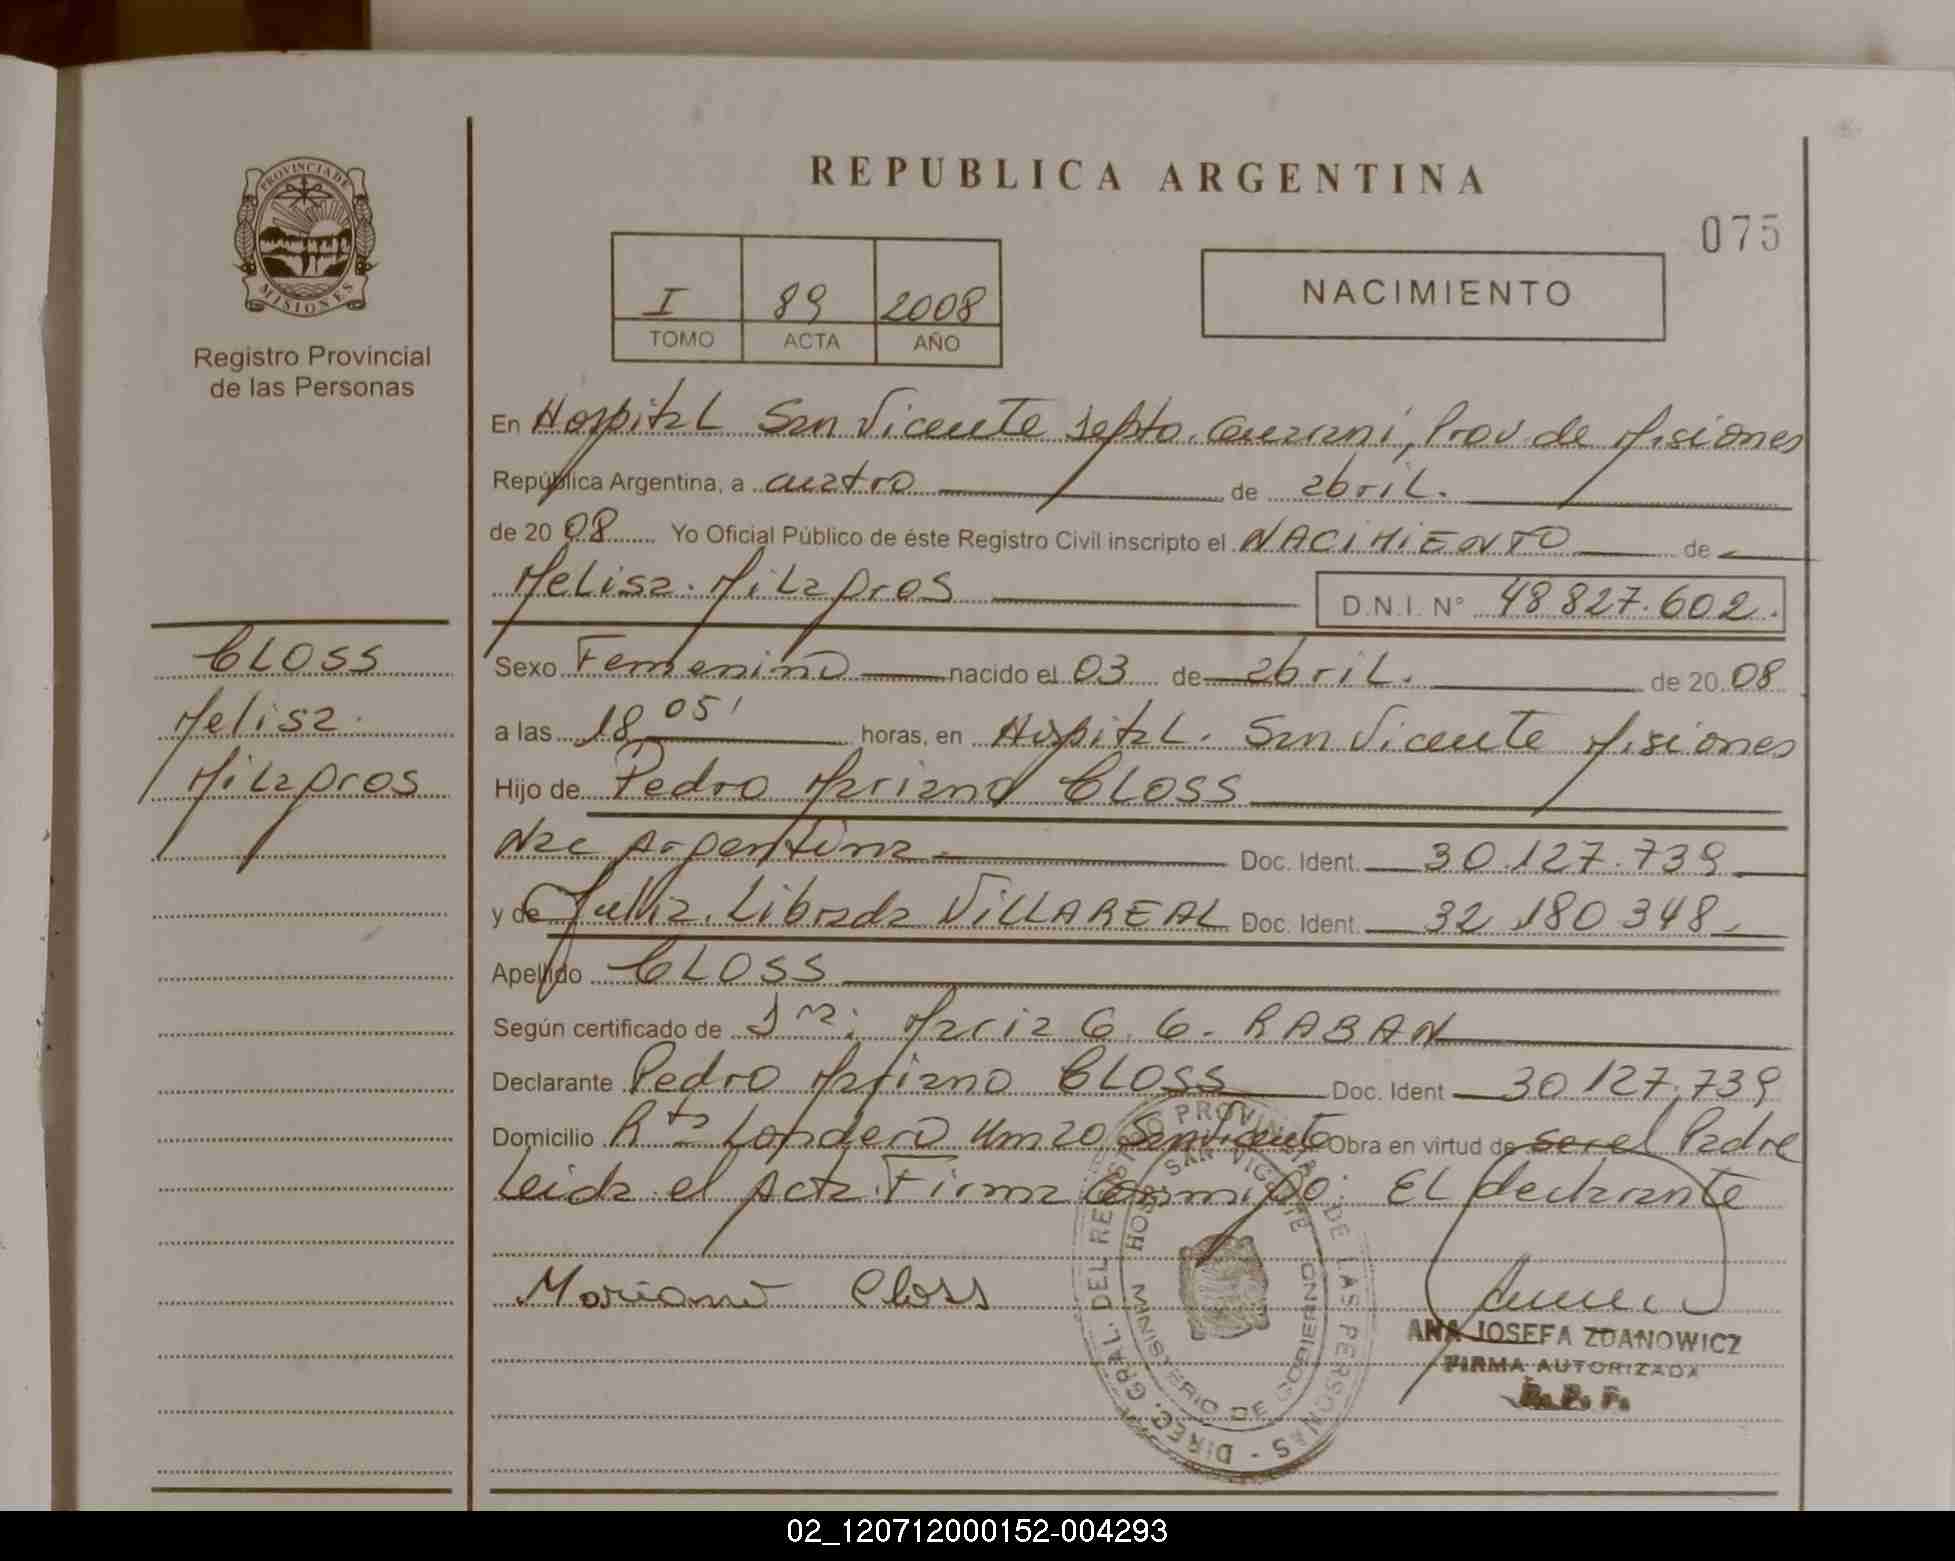 PROVINCIA DE
MISIONES
Registro Provincial
de las Personas
CLOSS
Melisa.
Milagros
REPUBLICA ARGENTINA
075
I 89 2008
TOMO ACTA AÑO
NACIMIENTO
En Hospital San Vicente Depto. Guarani, Prov. de Misiones
República Argentina, a cuatro de abril.
de 2008 Yo Oficial Público de éste Registro Civil inscripto el NACIMIENTO de
Melisa. Milagros D.N.I. Nº 48 827.602.
Sexo Femenino nacido el 03 de abril. de 2008
a las 18 05' horas, en Hospital. San Vicente Misiones
Hijo de Pedro Mariano CLOSS
Nac Argentina Doc. Ident. 30.127.739
y de Julia. Librada VILLAREAL Doc. Ident. 32 180 348
Apellido CLOSS
Según certificado de Maria G. G. RABAN
Declarante Pedro Mariano CLOSS Doc. Ident 30 127.739
Domicilio Rta Londero Km 20 San Vicente Obra en virtud de ser el Padre
Leida el Acta. Firma conmigo: El declarante
Mariano Closs
DIREC. GRAL. DEL REGISTRO PROVINCIAL DE LAS PERSONAS
HOSP. SAN VICENTE
MINISTERIO DE GOBIERNO
ANA JOSEFA ZDANOWICZ
FIRMA AUTORIZADA
R. P. P.
02_120712000152-004293